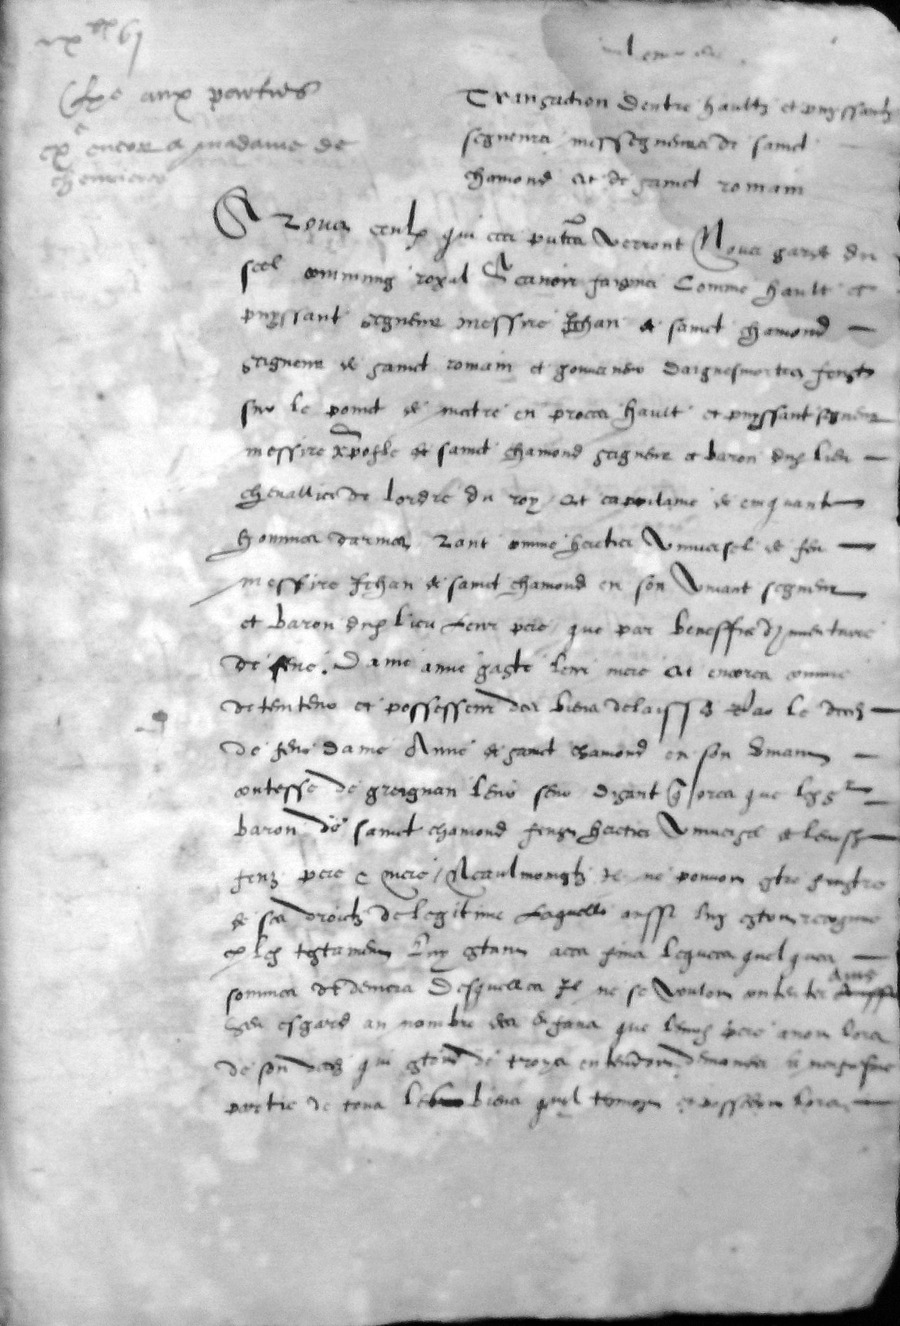 aux parties
encor a madame de
Transaction dentre haultz et puyssantz
segneurs messegneurs de sainct
chamond et de sainct romain
A Tous ceulx qui ces verront Nous garde du
seel commung royal scavoir faisons Comme hault et
puyssant segneur messire Jehan de sainct chamond
seigneur de sainct romain et gouverneur daiguesmortes feust
sur le poinct de mectre en proces hault et puyssant segneur
messire xpofle de sainct chamond seigneur et baron dud lieu
chevallier de lordre du roy et cappitaine de cinquante
hommes darmes Tant comme heretier Universel de feu
messire Jehan de sainct chamond en son Vivant segneur
et baron dud lieu leur pere que par beneffice dinventaire
de feue Dame anne gaste leur mere et encores comme
detenteur et possesseur des biens delaisses par le deces
de feue dame Anne de sainct chamond en son vivant
contesse de greignan leur seur disant que led sr
baron de sainct chamond feust heretier Universel de leursd
feuz pere et mere Neaulmoingtz Il ne pouvoit estre frustre
de ses droictz de legitime Laquelle aussi luy estoit recogneue
es testamens luy estans a ces fins leguees quelques
sommes de deniers Desquelles Il ne se Vouloit contenter Ains
heu esgard au nombre des enfans que leurd pere avoit lors
de son deces qui estoit de troys entendoit demander
partie de tous les biens quil tenoyt et possedoit lors